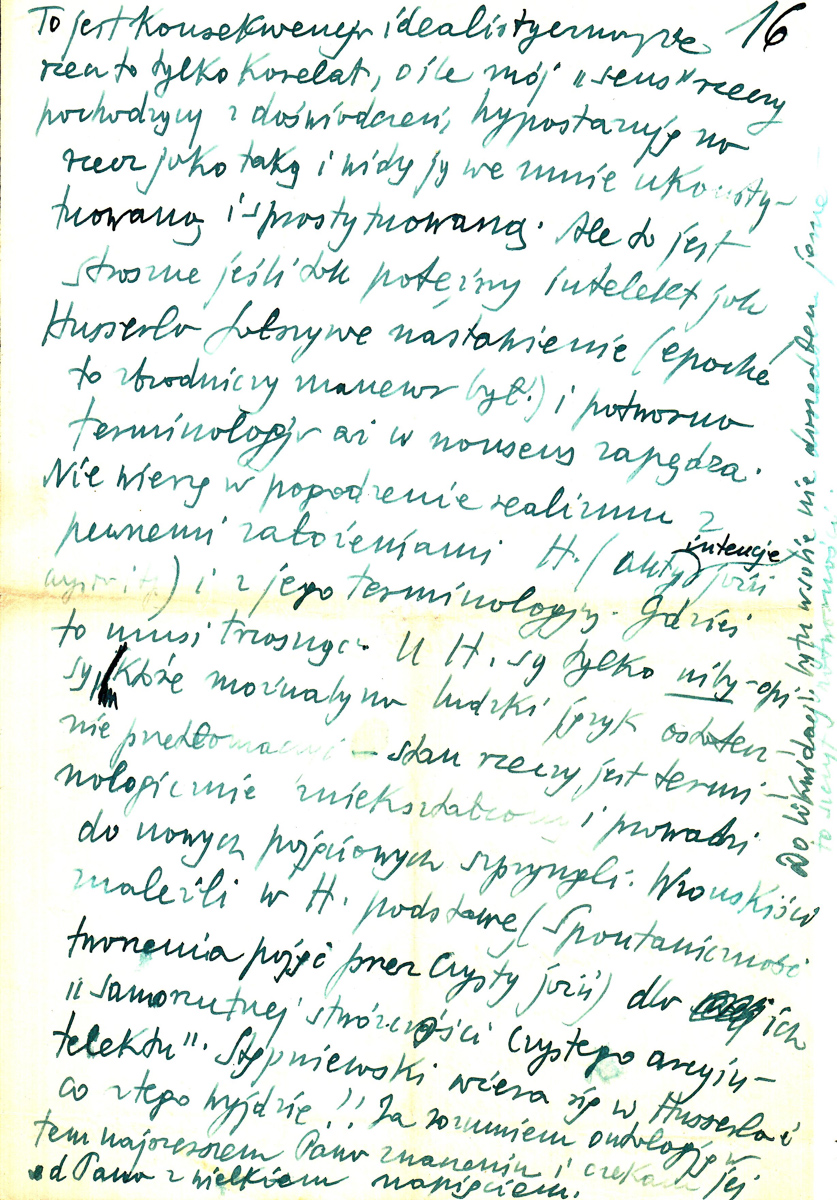 16
To jest konsekwencja idealistyczna, że
rzecz to tylko korelat, o ile mój „sens” rzeczy
pochodzący z doświadczeń, hypostazuję na
rzecz jako taką i widzę ją we mnie ukonsty-
tuowaną i sprostytuowaną. Ale to jest
straszne jeśli tak potężny intelekt jak
Husserla fałszywe nastawienie (epoché
to zbrodniczy manewr był!) i potworna
terminologja aż w nonsens zapędza.
Nie wierzę w pogodzenie realizmu z
pewnemi założeniami H. (akty, intencje jaźń
czysta itp) i z jego terminologją. Gdzieś
to musi trzasnąć. U H. są tylko niby-opi-
sy, które możnaby na ludzki język ostatecz-
nie przetłomaczyć — stan rzeczy jest termi-
nologicznie zniekształcony i prowadzi
do nowych pojęciowych szpryngli. Wrońskiści
znaleźli w H. podstawę (Spontaniczność
tworzenia pojęć przez Czystą jaźń) dla ich
„samorzutnej stwórczości Czystego arcyin-
telektu”. Stępniewski wciera się w Husserla i
co z tego wyjdzie!! Ja rozumiem ontologję w
tem najszerszem Pana znaczeniu i czekam jej
od Pana z wielkiem napięciem.
Do likwidacji: bytu w sobie nie doszedłem jasne
to